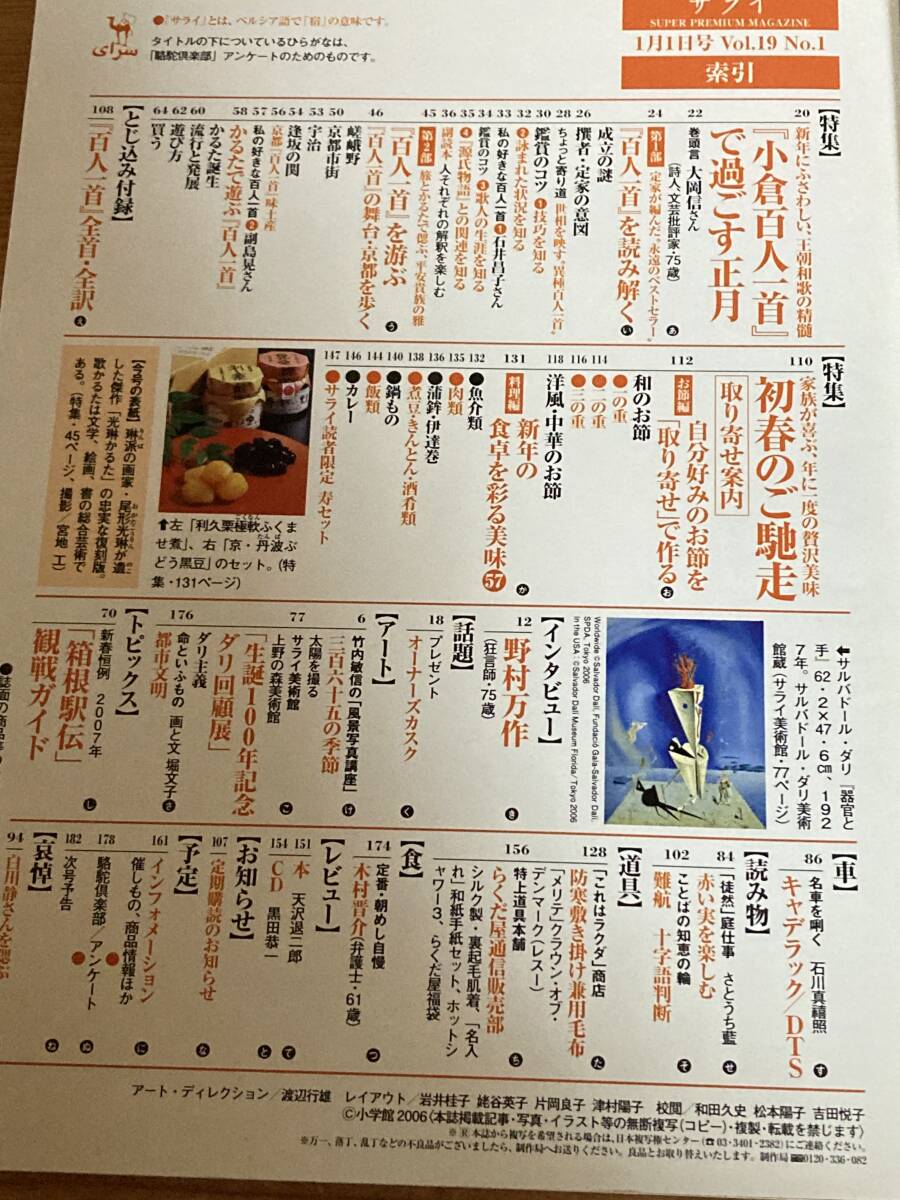 ●「サライ」とは、ペルシア語で「宿」の意味です。
タイトルの下についているひらがなは、
「駱駝倶楽部」アンケートのためのものです。
سرای
サライ
SUPER PREMIUM MAGAZINE
1月1日号 Vol.19 No.1
索引
【特集】
20 新年にふさわしい、王朝和歌の精髄
『小倉百人一首』
で過ごす正月
22 巻頭言 大岡信さん
(詩人、文芸批評家・75歳) あ
24 第1部 定家が編んだ“永遠のベストセラー”
『百人一首』を読み解く い
成立の謎
26 撰者・定家の意図
28 ちょっと寄り道 世相を映す“異種百人一首”
30 鑑賞のコツ❶技巧を知る
32 ❷詠まれた状況を知る
33 私の好きな百人一首❶石井昌子さん
34 鑑賞のコツ❸歌人の生涯を知る
35 ❹『源氏物語』との関連を知る
36 副読本 人それぞれの解釈を楽しむ
45 第2部 旅とかるたで偲ぶ、平安貴族の雅
『百人一首』を游ぶ う
46 『百人一首』の舞台・京都を歩く
嵯峨野
50 京都市街
53 宇治
54 逢坂の関
56 京都「百人一首」味土産
57 私の好きな百人一首❷副島晃さん
58 かるたで遊ぶ『百人一首』
かるた誕生
60 流行と発展
62 遊び方
64 買う
【とじ込み付録】
108 『百人一首』全首・全訳 え
【特集】
110 家族が喜ぶ、年に一度の贅沢美味
初春のご馳走
取り寄せ案内
112 お節編 自分好みのお節を
「取り寄せ」で作る お
和のお節
114 ●一の重
●二の重
116 ●三の重
118 洋風・中華のお節
131 料理編 新年の
食卓を彩る美味57 か
132 ●魚介類
135 ●肉類
136 ●蒲鉾・伊達巻
138 ●煮豆・きんとん・酒肴類
140 ●鍋もの
144 ●飯類
146 ●カレー
147 ●サライ読者限定 寿セット
⬆左「利久栗極軟ふくま
せ煮」、右「京・丹波ぶ
どう黒豆」のセット。(特
集・131ページ)
【今号の表紙】琳派の画家・尾形光琳が遺
した傑作「光琳かるた」の忠実な復刻版。
歌かるたは文学、絵画、書の総合芸術で
ある。(特集・45ページ、撮影/宮地 工)
⬅サルバドール・ダリ『器官と
手』62・2×47・6㎝、192
7年。サルバドール・ダリ美術
館蔵(サライ美術館・77ページ)
Worldwide ©Salvador Dalí, Fundació Gala-Salvador Dalí,
SPDA, Tokyo 2006
In the USA : ©Salvador Dalí Museum Florida/Tokyo 2006
【インタビュー】
12 野村万作
(狂言師・75歳) き
【話題】
18 プレゼント
オーナーズカスク く
【アート】
6 竹内敏信の「風景写真講座」
三百六十五の季節 け
太陽を撮る
77 サライ美術館
上野の森美術館
「生誕100年記念
ダリ回顧展」 こ
ダリ主義
176 命といふもの 画と文 堀文子
都市文明 さ
【トピックス】
70 新春恒例 2007年
「箱根駅伝」
観戦ガイド し
【車】
86 名車を唎く 石川真禧照
キャデラック/DTS す
【読み物】
84 「徒然」庭仕事 さとうち藍
赤い実を楽しむ せ
102 ことばの知恵の輪
難航 十字語判断 そ
【道具】
128 「これはラクダ」商店
防寒敷き掛け兼用毛布 た
「メリテ」クラウン・オブ・
デンマーク(レスー)
156 特上道具本舗
らくだ屋通信販売部 ち
シルク製・裏起毛肌着、「名入
れ」和紙手紙セット、ホットシ
ャワー3、らくだ屋福袋
【食】
174 定番・朝めし自慢
木村晋介(弁護士・61歳) つ
【レビュー】
151 本 天沢退二郎 て
154 CD 黒田恭一 と
【お知らせ】
107 定期購読のお知らせ な
【予定】
161 インフォメーション に
催しもの、商品情報ほか
178 駱駝倶楽部/アンケート ぬ
182 次号予告 ね
【哀悼】
94 白川静さんを偲ぶ
アート・ディレクション/渡辺行雄 レイアウト/岩井桂子 姥谷英子 片岡良子 津村陽子 校閲/和田久史 松本陽子 吉田悦子
©小学館2006〈本誌掲載記事・写真・イラスト等の無断複写(コピー)・複製・転載を禁じます〉
※Ⓡ本誌から複写を希望される場合は、日本複写権センター(☎03-3401-2382)にご連絡ください。
※万一、落丁、乱丁などの不良品がございましたら、制作局へお送りください。良品とお取り替えいたします。制作局0120-336-082